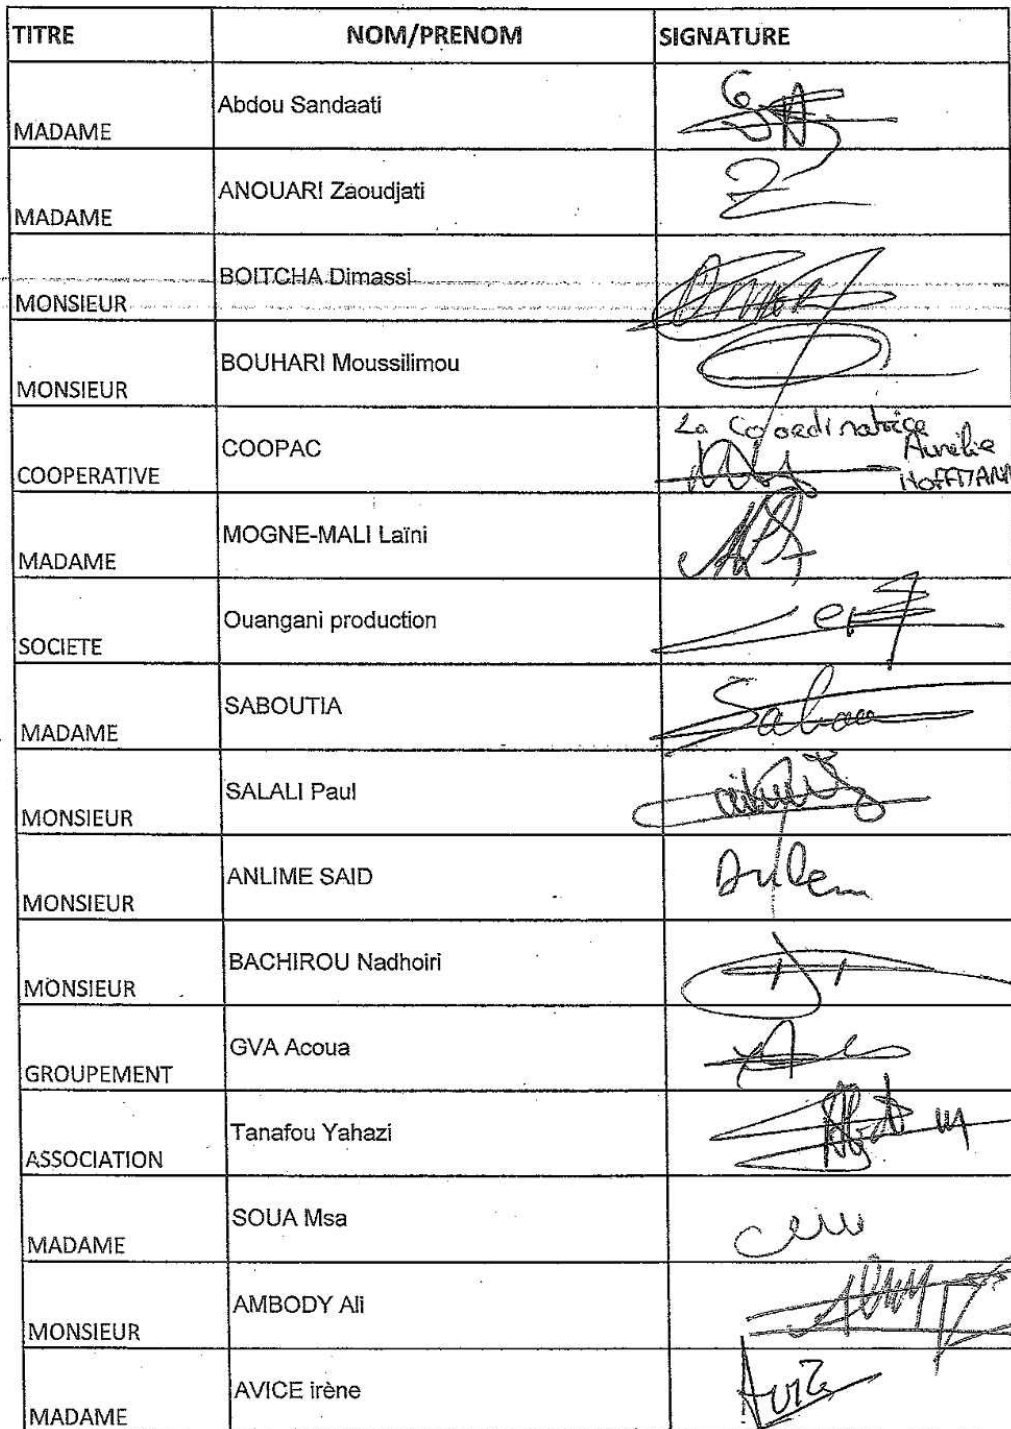 TITRE NOM/PRENOM SIGNATURE
MADAME Abdou Sandaati
MADAME ANOUARI Zaoudjati
MONSIEUR BOITCHA Dimassi
MONSIEUR BOUHARI Moussilimou
COOPERATIVE COOPAC La Coordinatrice
Aurélie
HOFFMANN
MADAME MOGNE-MALI Laïni
SOCIETE Ouangani production
MADAME SABOUTIA
MONSIEUR SALALI Paul
MONSIEUR ANLIME SAID
MONSIEUR BACHIROU Nadhoiri
GROUPEMENT GVA Acoua
ASSOCIATION Tanafou Yahazi
MADAME SOUA Msa
MONSIEUR AMBODY Ali
MADAME AVICE irène